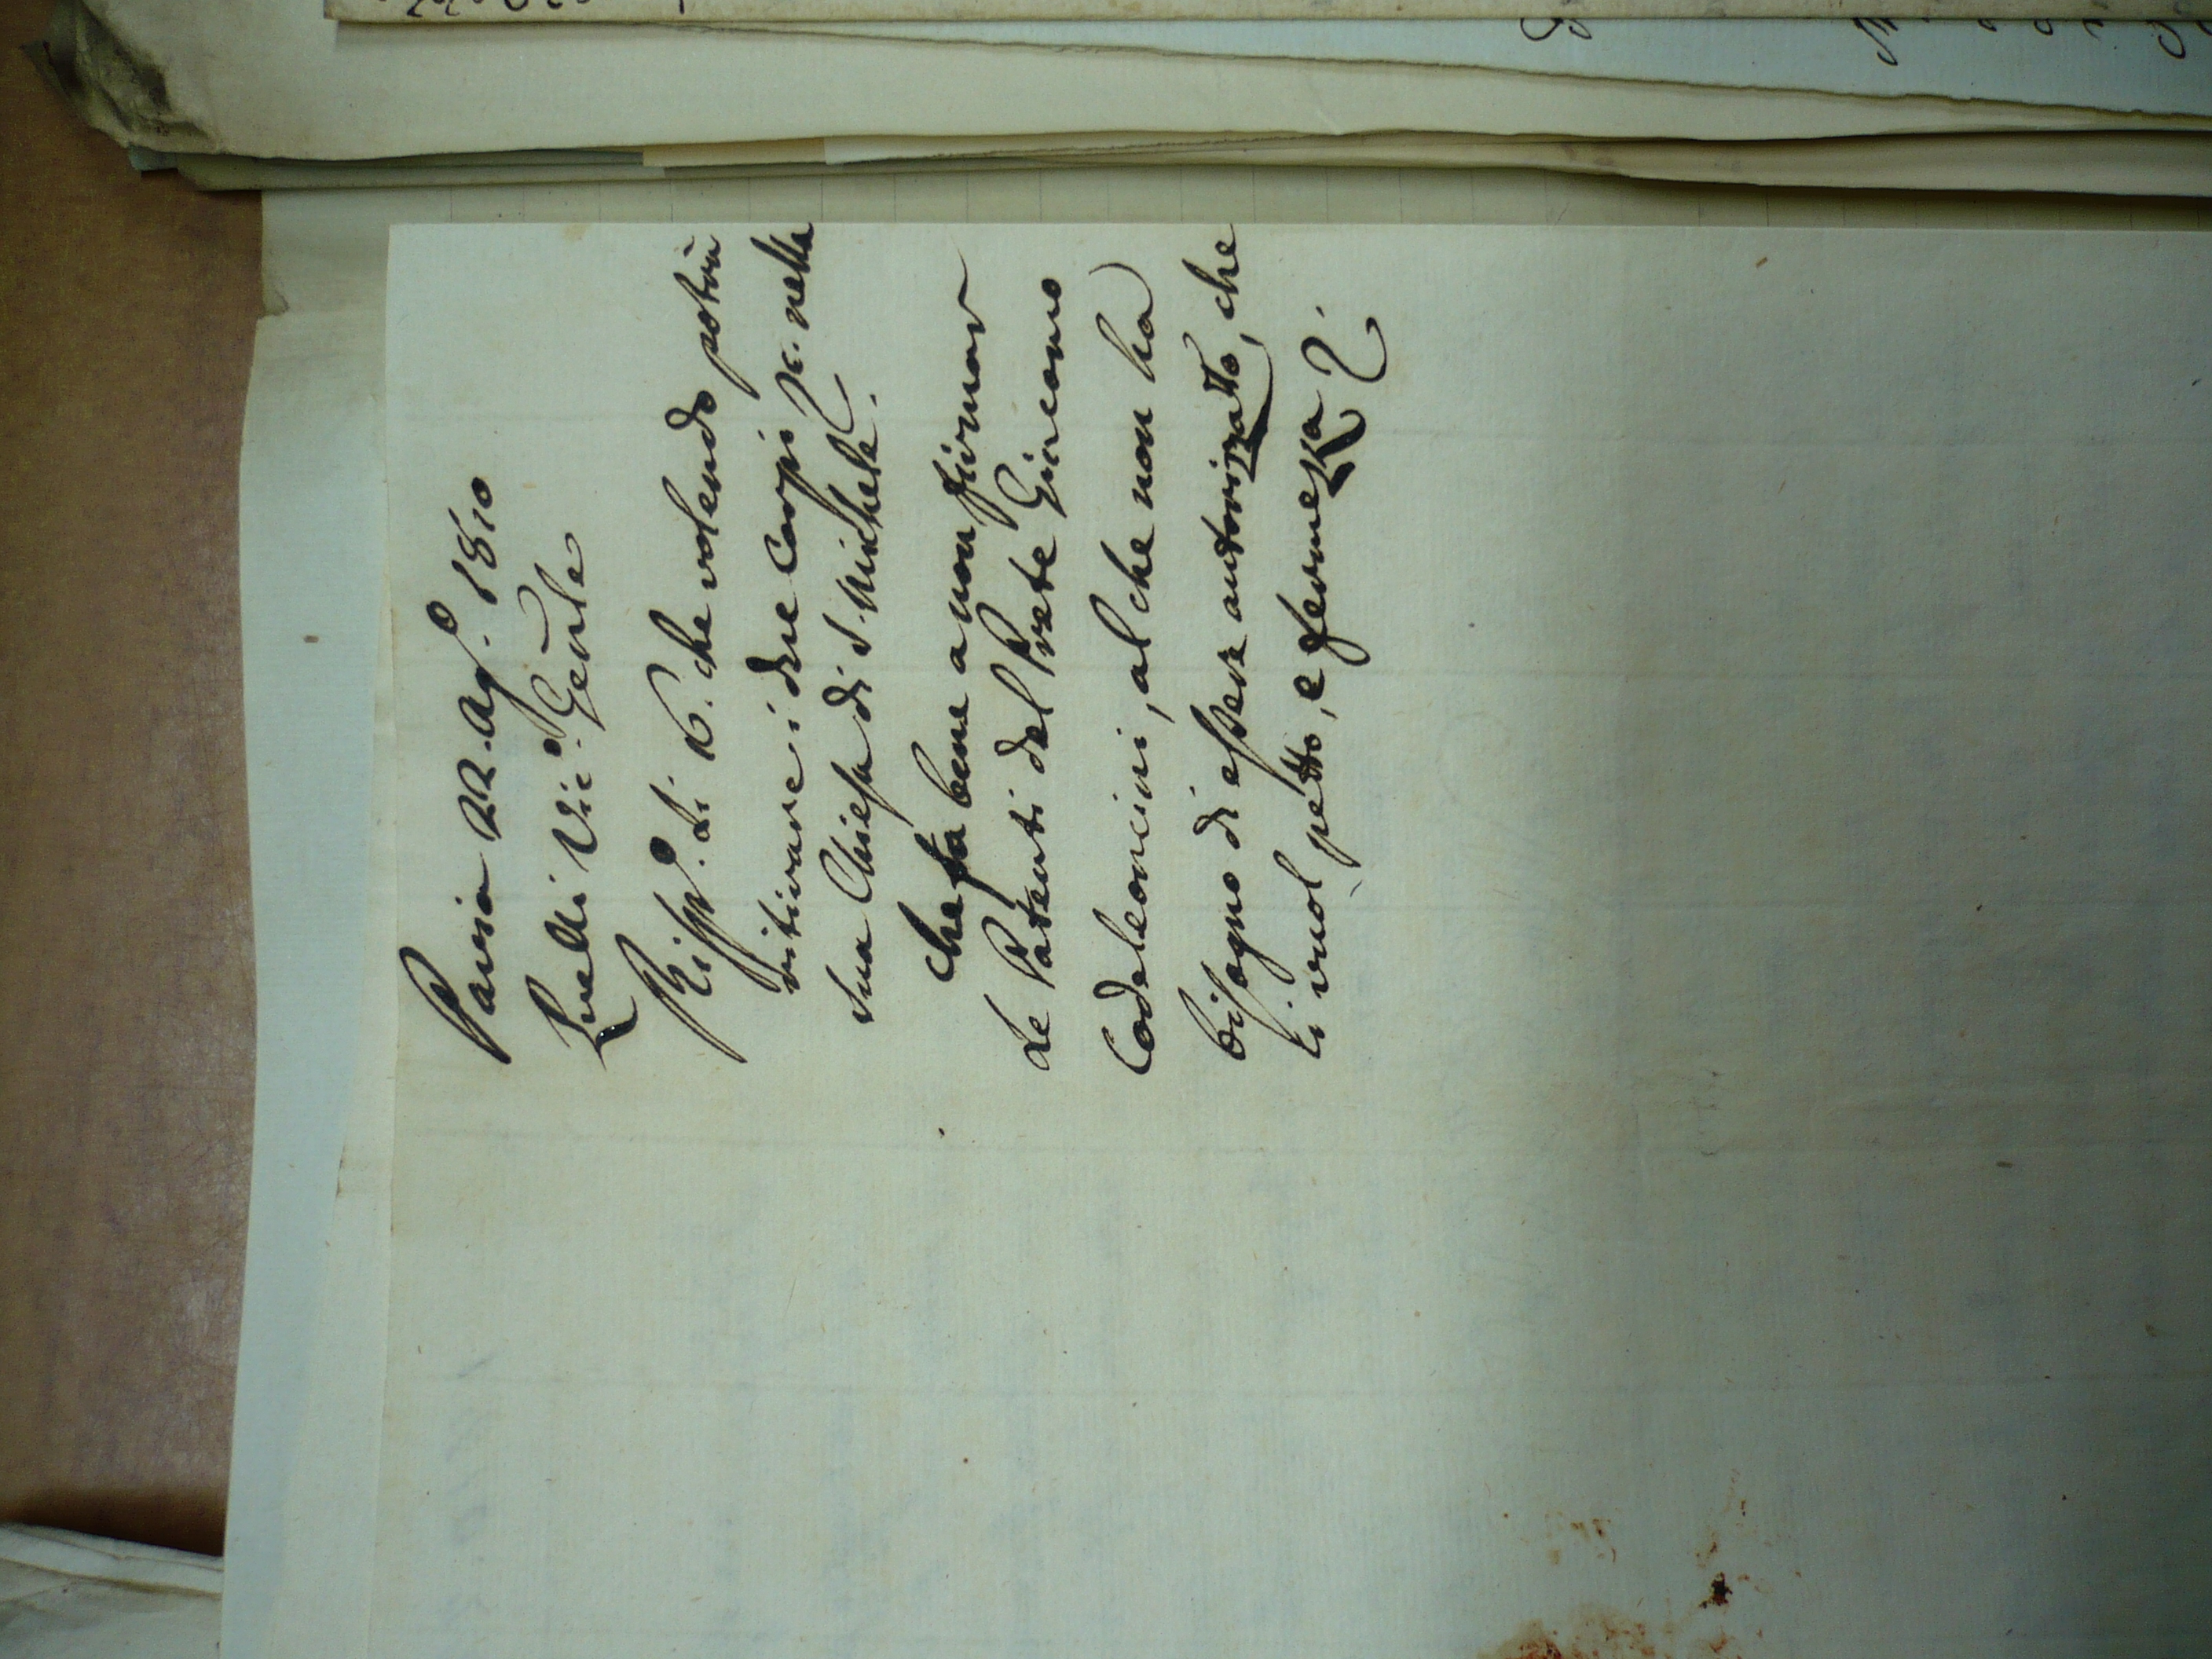 Pavia 22. Ag.o 1810
Lualdi Vic.o Gen̄le
Risp.o li 16. che volendo potrà
ritirare i due Corpi &c. nella
sua Chiesa di S. Michele.
che fa bene a non firmar
le Patenti del Prete Giacomo
Codeleoncini, al che non ha
bisogno di essere autorizzatto, che
ci vuol petto, e fermezza.